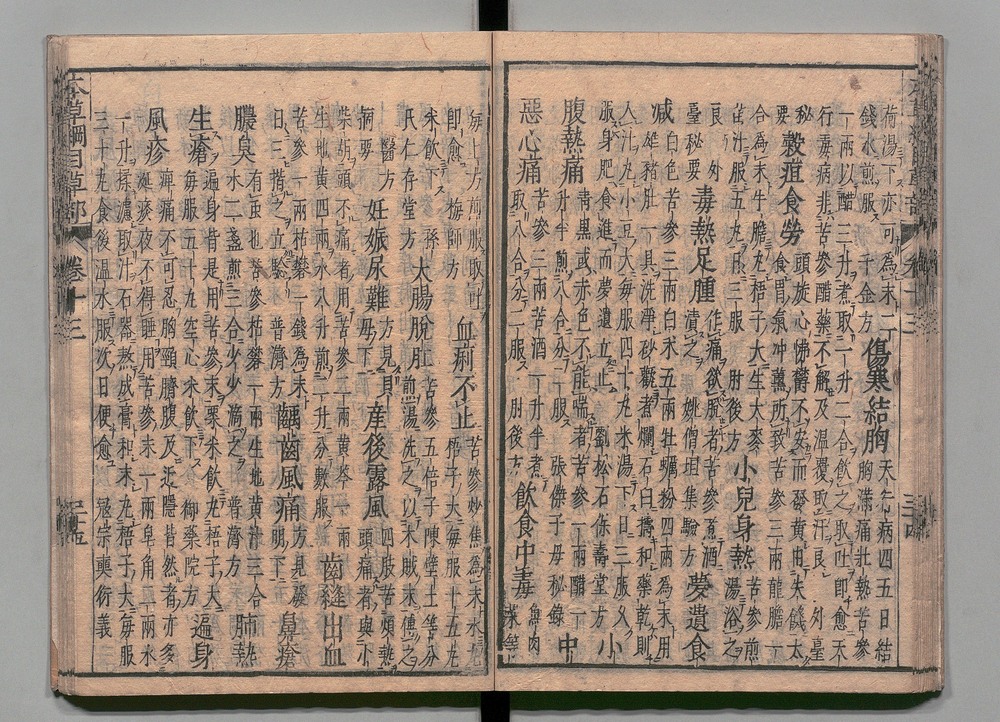 荷湯下亦可為末二傷寒結胸天行病四五日結
錢水煎服千金方胸滿痛壯熱苦參
一兩以醋三升煮取一升二合飲之取吐即愈天
行毒病非苦參醋藥不解及溫覆取汗良外臺
秘要穀疸食勞頭旋心怫鬱不安而發黃由失饑大
食胃氣冲薰所致苦參三兩龍膽一
合為末牛膽丸梧子大生大麥苦參煎
苖汁服五丸日三服肘後方小兒身熱湯浴之
良外臺秘要毒熱足腫作痛欲脫者苦參煮酒
漬之姚僧坦集驗方夢遺食
减白色苦參三兩白朮五兩牡蠣粉四兩為末用
雄豬肚一具洗淨砂罐煮爛石臼擣和藥乾則
入汁丸小豆大每服四十丸米湯下日三服久
服身肥食進而夢遺立止劉松石保壽堂方小
腹熱痛青黑或赤色不能喘者苦參一兩醋一
升半煎八合分二服張傑子母秘錄中
惡心痛苦參三兩苦酒一升半煮
取八合分二服肘後方飲食中毒魚肉
菜等
毒上方煎服取吐
即愈梅師方血痢不止苦參炒焦為末水
丸梧子大每服十五丸
米飲下孫氏仁存堂方大腸脫肛苦參五倍子陳壁土等分
煎湯洗之以木賊末傅之
醫方
摘要妊娠尿難方見貝
母下產後露風四肢苦煩熱
頭痛者與小
柴胡頭不痛者用苦參二兩黃芩一兩
生地黃四兩水八升煎二升分數服齒縫出血
苦參一兩枯礬一錢為末
日三揩之立驗普濟方齲齒風痛方見發
明下鼻瘡
膿臭有虫也苦參枯礬一兩生地黃汁三合
水二盞煎三合少少滴之普濟方肺熱
生瘡遍身皆是用苦參末粟米飲丸梧子大
每服五十丸空心米飲下御藥院方遍身
風疹痺痛不可忍胸頸臍腹及近隱皆然者亦多
涎痰夜不得睡用苦參末一兩皂角二兩水
一升揉濾取汁石器熬成膏和末丸梧子大每服
三十丸食後溫水服次日便愈寇宗奭衍義
本草綱目草部
卷十三